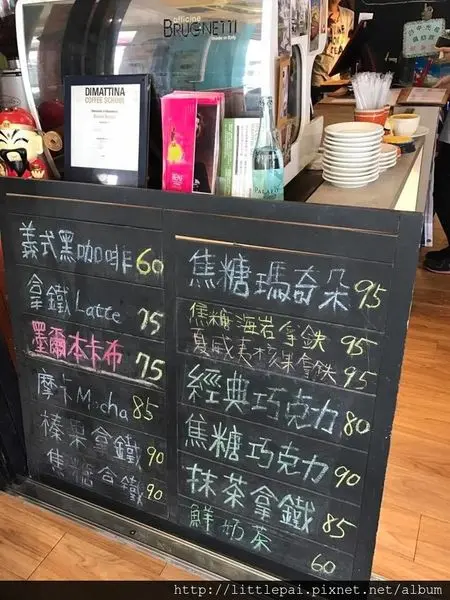 officine
BRUGNETTI
made in Italy
DIMATTINA
COFFEE SCHOOL
義式黑咖啡 60
拿鐵 Latte 75
墨爾本卡布 75
摩卡 Mocha 85
榛果拿鐵 90
焦糖拿鐵 90
焦糖瑪奇朵 95
焦糖海岩拿鉄 95
夏威夷核果拿鉄 95
經典巧克力 80
焦糖巧克力 90
抹茶拿鐵 85
鮮奶茶 60
http://littlepai.pixnet.net/album